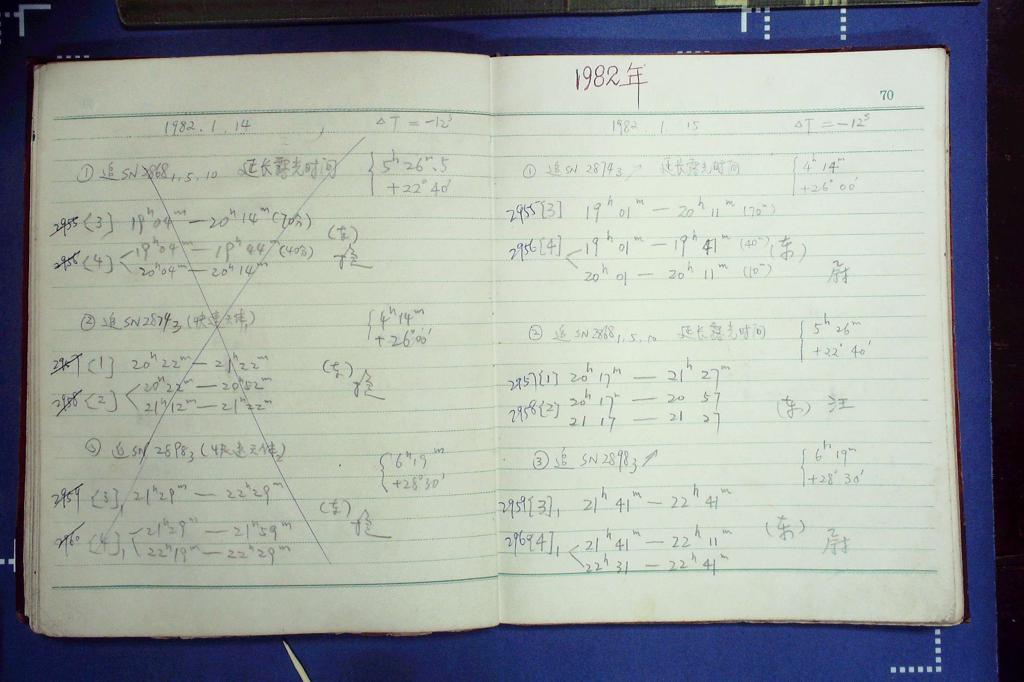 1982.1.14 ΔT = -12ˢ
① 追 SN 2868₁,₅,₁₀ 延长露光时间 { 5ʰ 26ᵐ.5
+22° 40′
2955 [3] 19ʰ04ᵐ — 20ʰ14ᵐ (70分)
2956 [4] < 19ʰ04ᵐ — 19ʰ44ᵐ (40分) (东)
20ʰ04ᵐ — 20ʰ14ᵐ
② 追 SN 2874₃ (快速天体) { 4ʰ14ᵐ
+26°00′
2957 [1] 20ʰ22ᵐ — 21ʰ22ᵐ (东)
2958 [2] < 20ʰ22ᵐ — 20ʰ52ᵐ
21ʰ12ᵐ — 21ʰ22ᵐ
③ 追 SN 2898₃ (快速天体) { 6ʰ19ᵐ
+28°30′
2959 [3]₁ 21ʰ29ᵐ — 22ʰ29ᵐ (东)
2960 [4]₁ < 21ʰ29ᵐ — 21ʰ59ᵐ
22ʰ19ᵐ — 22ʰ29ᵐ
1982年
70
1982.1.15 ΔT = -12ˢ
① 追 SN 2874₃ 延长露光时间 { 4ʰ 14ᵐ
+26° 00′
2955 [3] 19ʰ 01ᵐ — 20ʰ 11ᵐ (70ᵐ)
2956 [4] < 19ʰ 01ᵐ — 19ʰ 41ᵐ (40ᵐ) (东)
20ʰ 01 — 20ʰ 11ᵐ (10ᵐ) 尉
② 追 SN 2868₁,₅,₁₀ 延长露光时间 { 5ʰ 26ᵐ
+22° 40′
2957 [1] 20ʰ 17ᵐ — 21ʰ 27ᵐ
2958 [2] 20ʰ 17ᵐ — 20 57 (东) 汪
21 17 — 21 27
③ 追 SN 2898₃ { 6ʰ 19ᵐ
+28° 30′
2959 [3]₁ 21ʰ 41ᵐ — 22ʰ 41ᵐ
2960 [4]₁ < 21ʰ 41ᵐ — 22ʰ 11ᵐ (东) 尉
22ʰ 31 — 22ʰ 41ᵐ